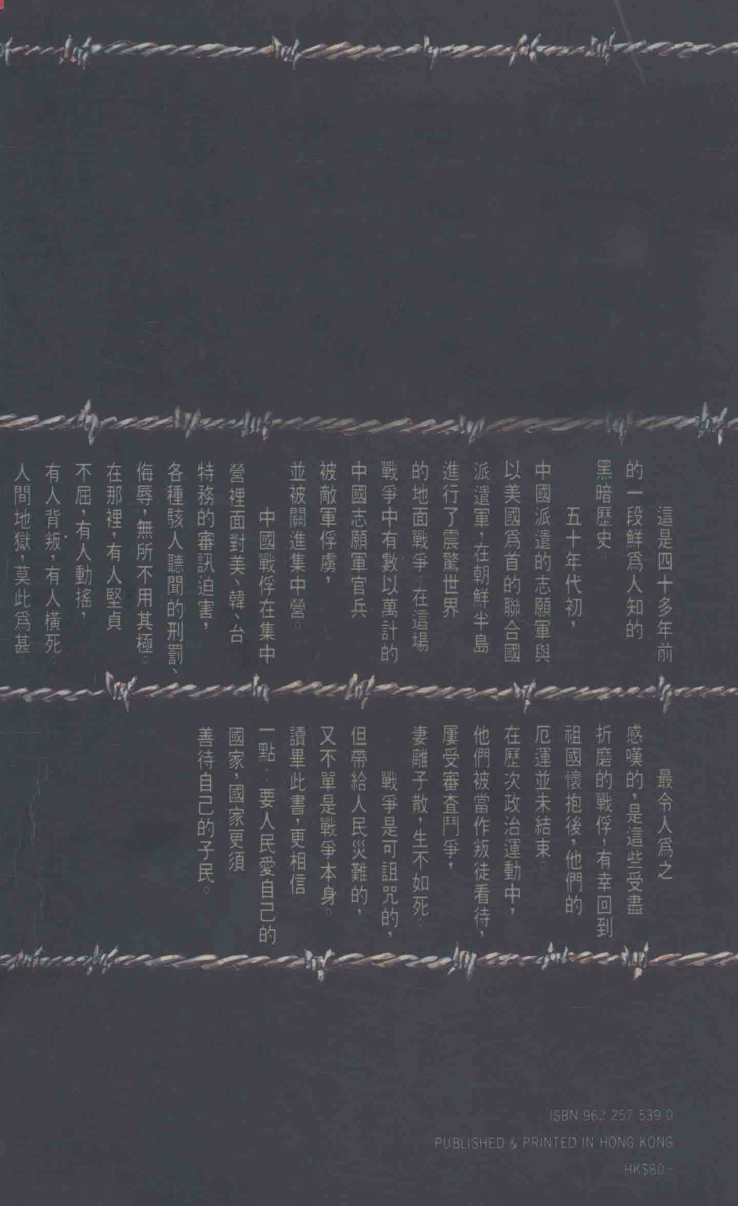 這是四十多年前
的一段鮮爲人知的
黑暗歷史。
五十年代初，
中國派遣的志願軍與
以美國爲首的聯合國
派遣軍，在朝鮮半島
進行了震驚世界
的地面戰爭。在這場
戰爭中有數以萬計的
中國志願軍官兵
被敵軍俘虜，
並被關進集中營。
中國戰俘在集中
營裡面對美、韓、台
特務的審訊迫害，
各種駭人聽聞的刑罰、
侮辱，無所不用其極。
在那裡，有人堅貞
不屈，有人動搖，
有人背叛，有人橫死。
人間地獄，莫此爲甚。
最令人爲之
感嘆的，是這些受盡
折磨的戰俘，有幸回到
祖國懷抱後，他們的
厄運並未結束。
在歷次政治運動中，
他們被當作叛徒看待，
屢受審查鬥爭，
妻離子散，生不如死。
戰爭是可詛咒的，
但帶給人民災難的，
又不單是戰爭本身。
讀畢此書，更相信
一點：要人民愛自己的
國家，國家更須
善待自己的子民。
ISBN 962 257 539 0
PUBLISHED & PRINTED IN HONG KONG
HK$80 -